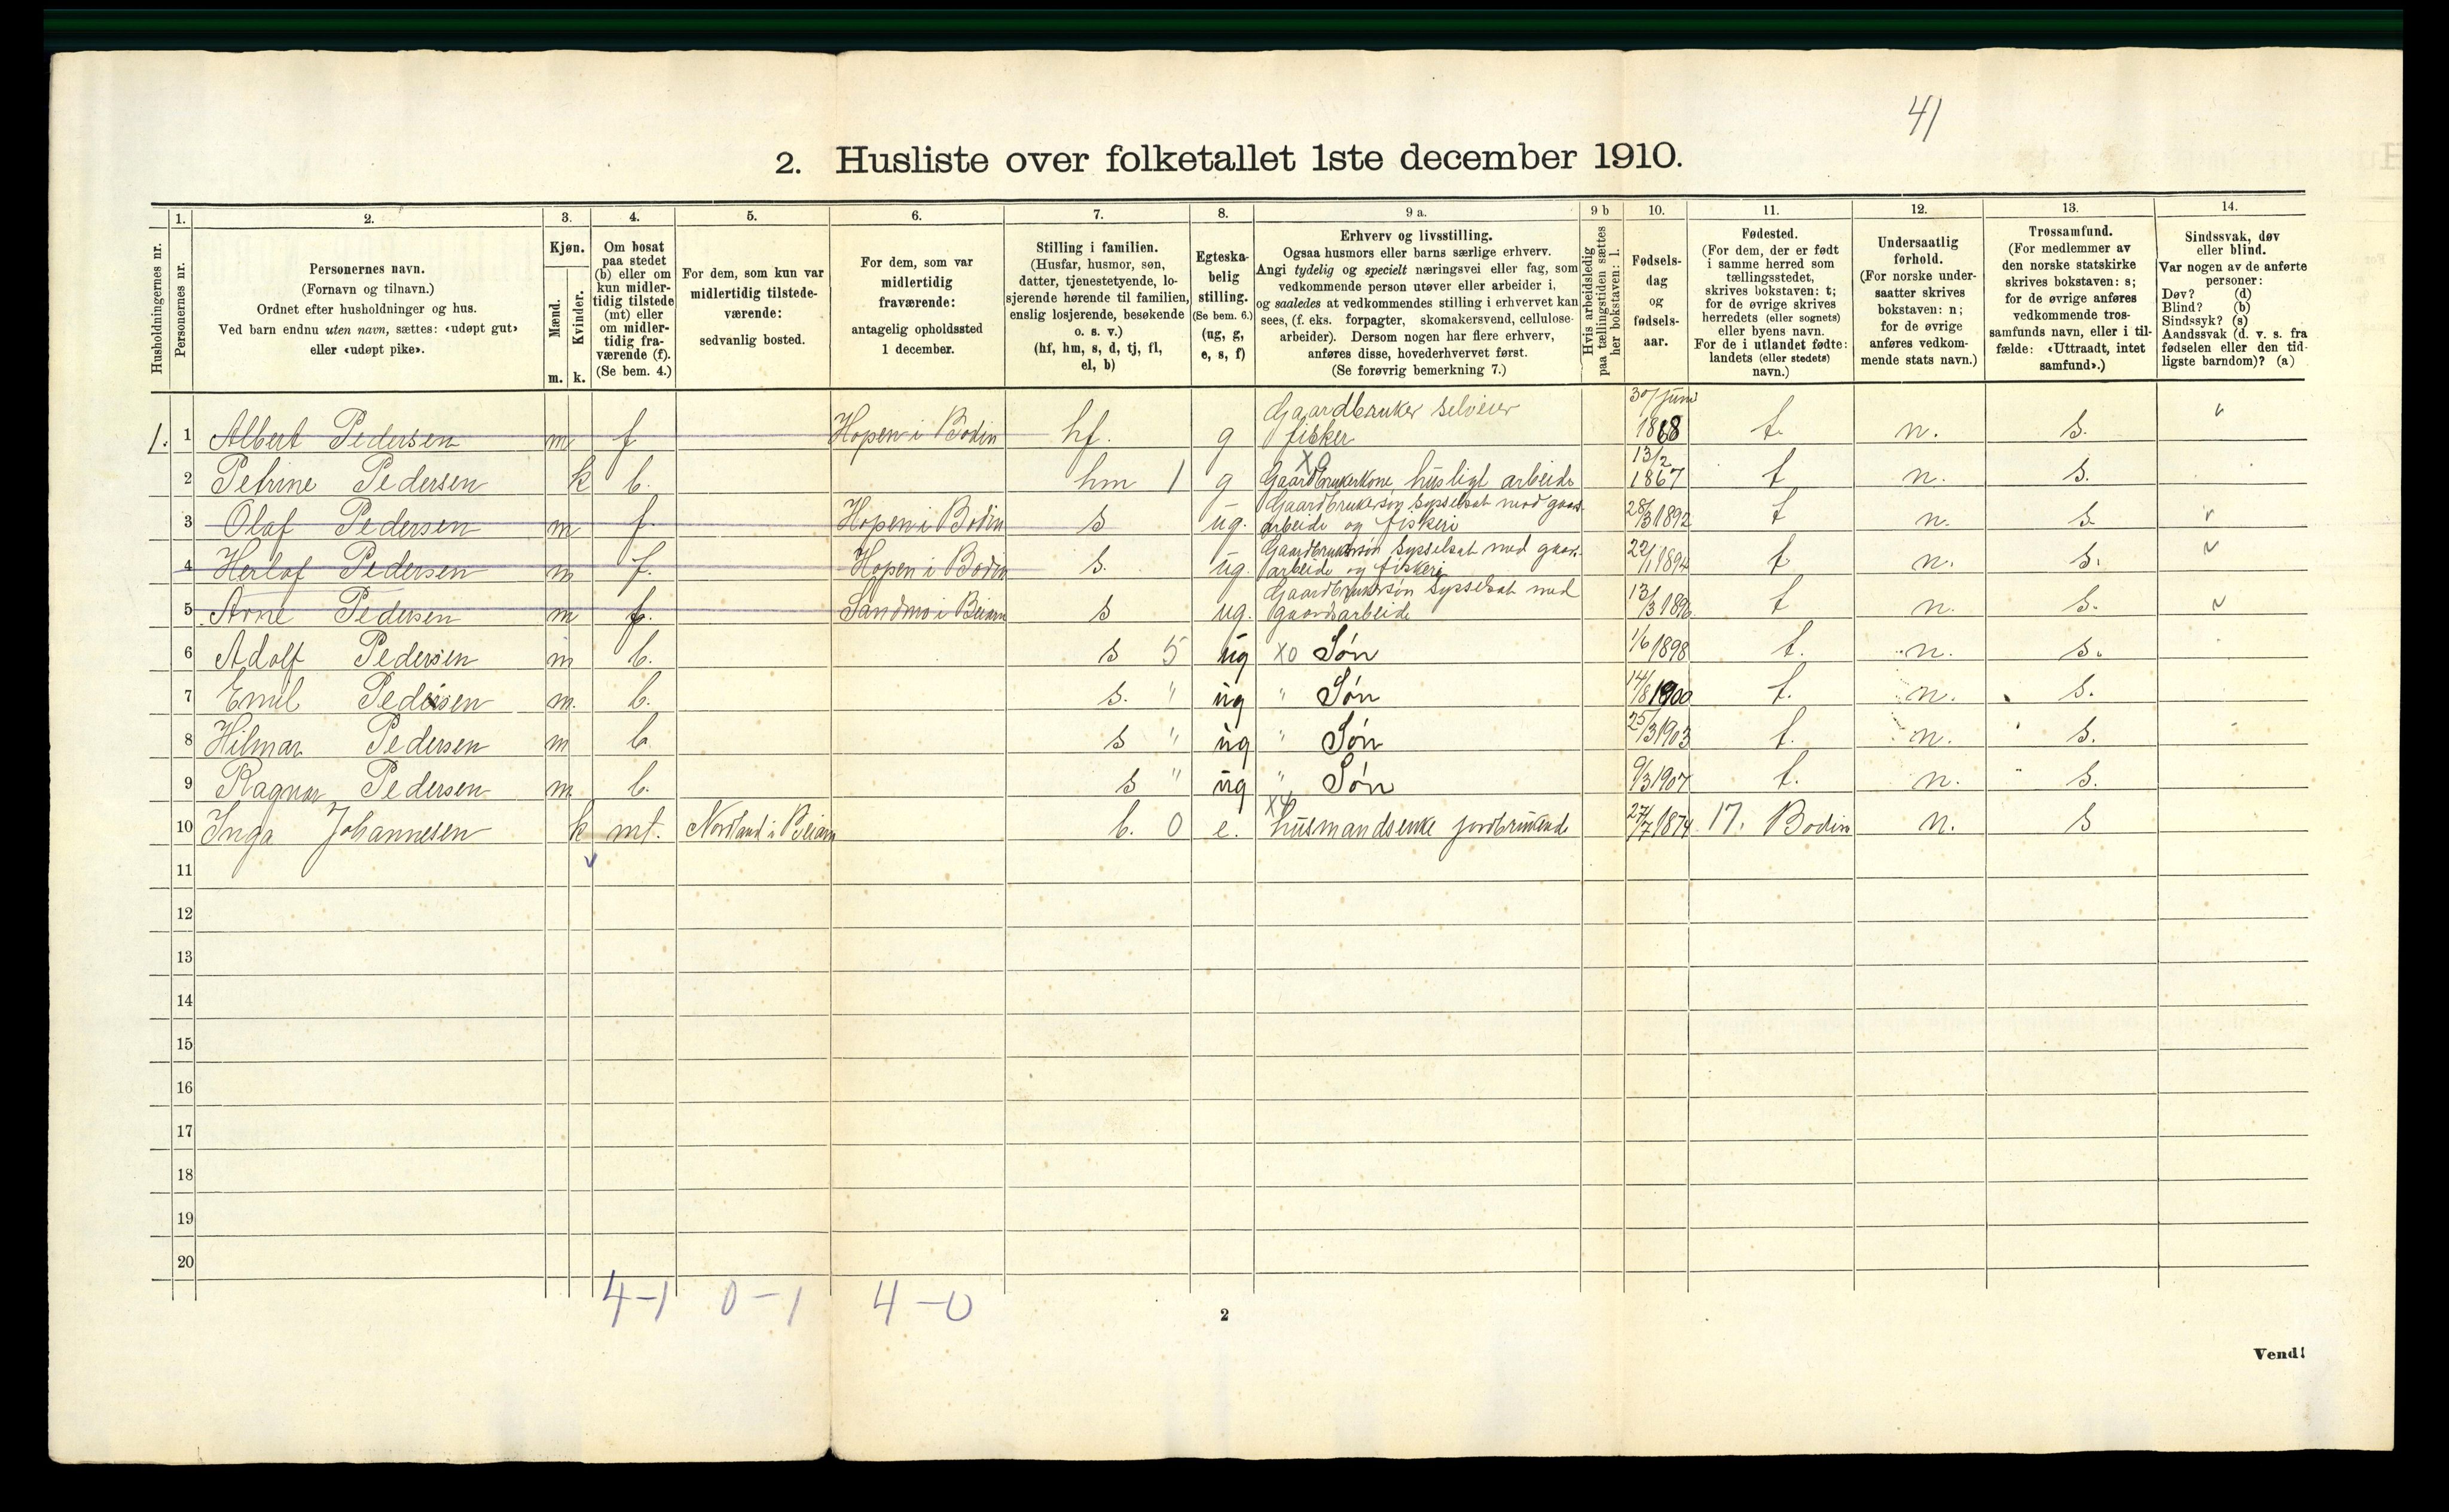 41
2. Husliste over folketallet 1ste december 1910.
Husholdningernes nr.
1.
Personernes nr.
2.
Personernes navn.
(Fornavn og tilnavn.)
Ordnet efter husholdninger og hus.
Ved barn endnu uten navn, sættes: «udøpt gut»
eller «udøpt pike».
3.
Kjøn.
Mænd.
Kvinder.
m. k.
4.
Om bosat
paa stedet
(b) eller om
kun midler-
tidig tilstede
(mt) eller
om midler-
tidig fra-
værende (f).
(Se bem. 4.)
5.
For dem, som kun var
midlertidig tilstede-
værende:
sedvanlig bosted.
6.
For dem, som var
midlertidig
fraværende:
antagelig opholdssted
1 december.
7.
Stilling i familien.
(Husfar, husmor, søn,
datter, tjenestetyende, lo-
sjerende hørende til familien,
enslig losjerende, besøkende
o. s. v.)
(hf, hm, s, d, tj, fl,
el, b)
8.
Egteska-
belig
stilling.
(Se bem. 6.)
(ug, g,
e, s, f)
9 a.
Erhverv og livsstilling.
Ogsaa husmors eller barns særlige erhverv.
Angi tydelig og specielt næringsvei eller fag, som
vedkommende person utøver eller arbeider i,
og saaledes at vedkommendes stilling i erhvervet kan
sees, (f. eks. forpagter, skomakersvend, cellulose-
arbeider). Dersom nogen har flere erhverv,
anføres disse, hovederhvervet først.
(Se forøvrig bemerkning 7.)
9 b
Hvis arbeidsledig
paa tællingstiden sættes
her bokstaven: l.
10.
Fødsels-
dag
og
fødsels-
aar.
11.
Fødested.
(For dem, der er født
i samme herred som
tællingsstedet,
skrives bokstaven: t;
for de øvrige skrives
herredets (eller sognets)
eller byens navn.
For de i utlandet fødte:
landets (eller stedets)
navn.)
12.
Undersaatlig
forhold.
(For norske under-
saatter skrives
bokstaven: n;
for de øvrige
anføres vedkom-
mende stats navn.)
13.
Trossamfund.
(For medlemmer av
den norske statskirke
skrives bokstaven: s;
for de øvrige anføres
vedkommende tros-
samfunds navn, eller i til-
fælde: «Uttraadt, intet
samfund».)
14.
Sindssvak, døv
eller blind.
Var nogen av de anførte
personer:
Døv? (d)
Blind? (b)
Sindssyk? (s)
Aandssvak (d. v. s. fra
fødselen eller den tid-
ligste barndom)? (a)
1. 1 Albert Pedersen m f Hopen i Bodin hf. g Gaardbruker selveier fisker 30/juni 1868 t. n. s.
2 Petrine Pedersen k b. hm 1 g X0 Gaardbrukerkone husligt arbeide 13/2 1867 t n. s.
3 Olaf Pedersen m f. Hopen i Bodin s ug. Gaardbrukersøn sysselsat med gaards arbeide og fiskeri 28/3 1892 t n. s.
4 Herlof Pedersen m f. Hopen i Bodin s. ug. Gaardbrukersøn sysselsat med gaards arbeide og fiskeri 22/1 1894 t n. s.
5 Arne Pedersen m f. Sandmo i Beiarn s ug. Gaardbrukersøn sysselsat med gaardsarbeide 13/3 1896 t n. s.
6 Adolf Pedersen m b. s 5 ug X0 Søn 1/6 1898 t. n. s.
7 Emil Pedersen m. b. s. " ug " Søn 14/8 1900 t. n. s.
8 Hilmar Pedersen m b. s " ug " Søn 25/3 1903 t. n. s.
9 Ragnar Pedersen m b. s " ug " Søn 9/3 1907 t. n. s.
10 Inga Johannesen k mt. Nordland i Beiarn b. 0 e. husmandsenke jordbrukende 27/7 1874 17. Bodin n. s
11
12
13
14
15
16
17
18
19
20
4-1 0-1 4-0
2
Vend!